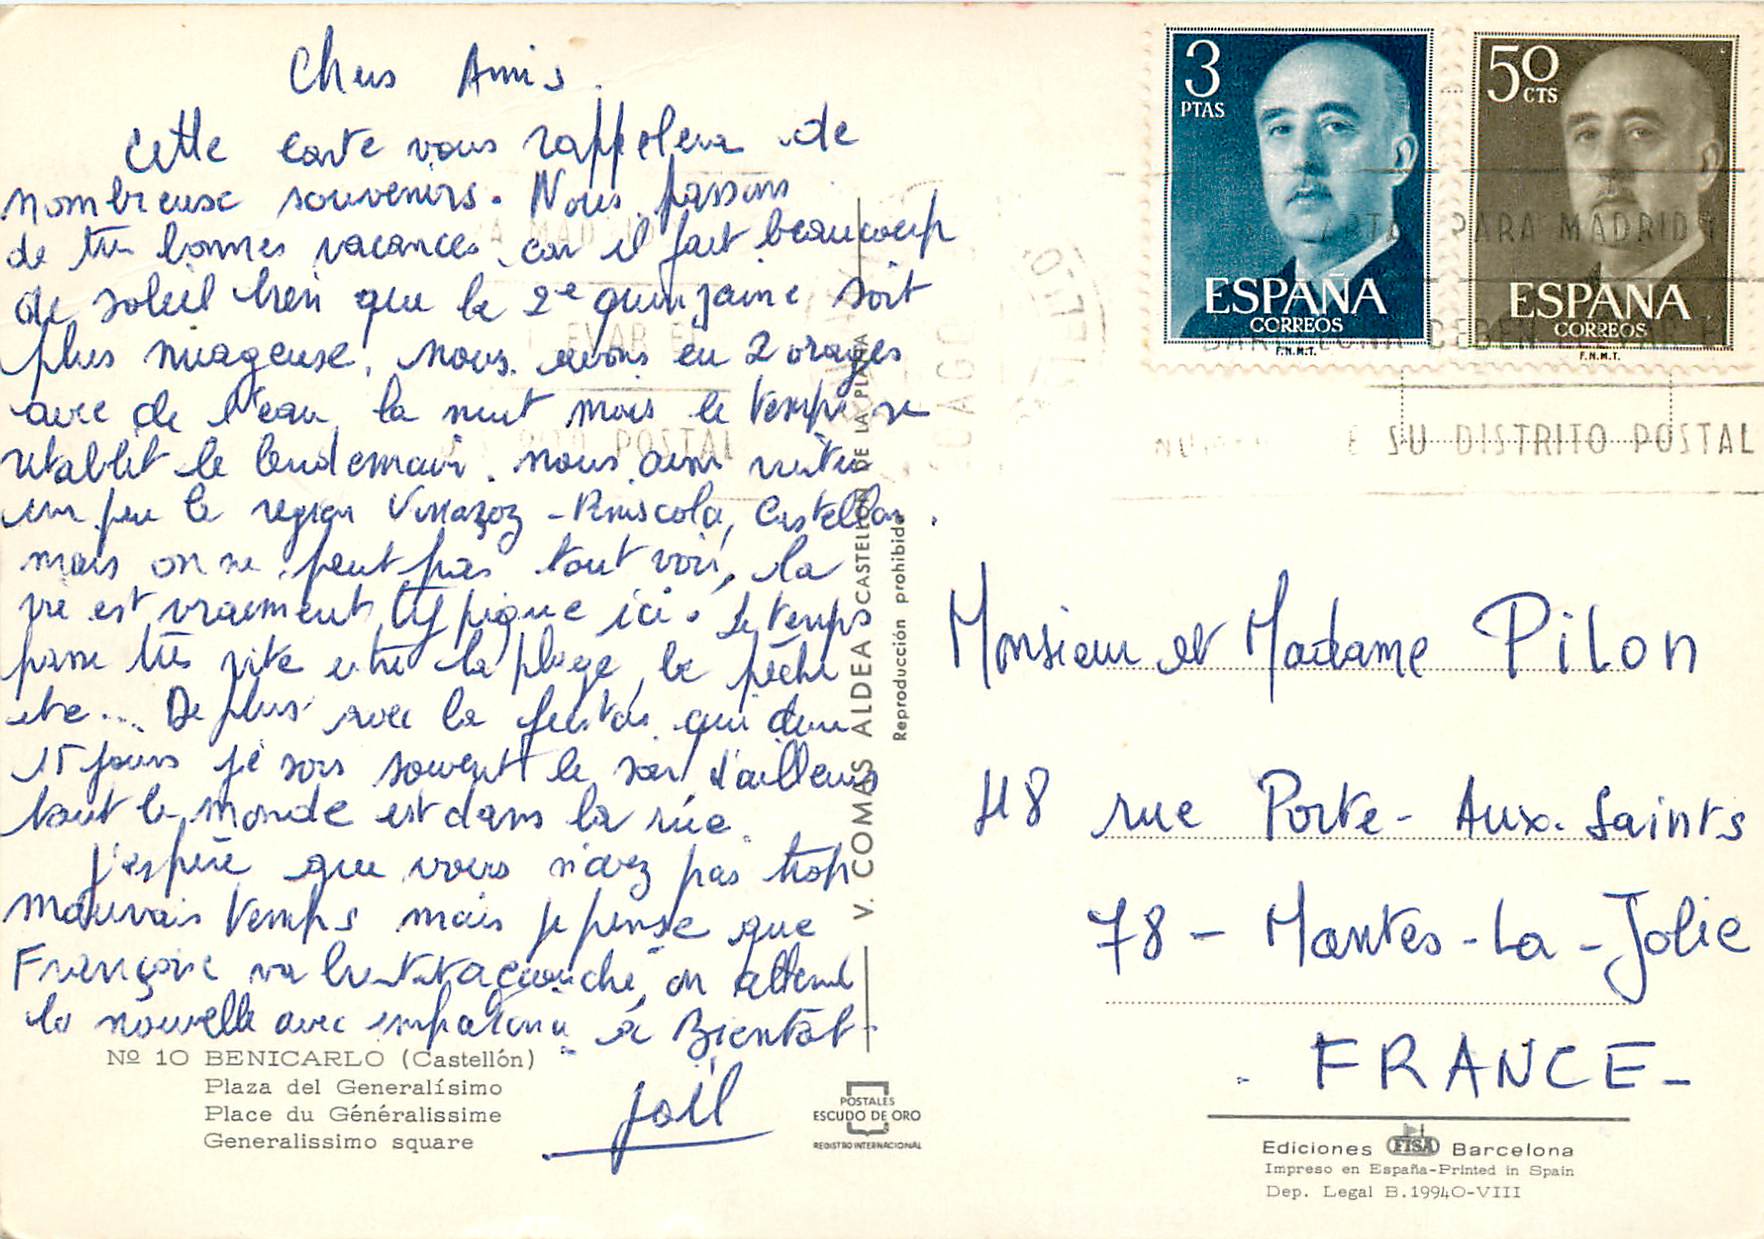 Chers Amis.
Cette carte vous rappelera de
nombreuse souvenirs. Nous passons
de très bonnes vacances car il fait beaucoup
de soleil bien que la 2e quinzaine soit
plus nuageuse. nous avons eu 2 orages
avec de l'eau la nuit mais le temps se
rétablit le lendemain. nous avons visité
un peu la région Vinazoz - Peniscola, Castellon.
mais on ne peut pas tout voir, la
vie est vraiment typique ici. Le temps
passe très vite entre la plage, la pêche
etc... De plus avec la fiestas qui dure
15 jours je sors souvent le soir d'ailleurs
tout le monde est dans la rue.
J'espère que vous n'avez pas trop
mauvais temps mais je pense que
Françoise va bientôt accouché, on attend
la nouvelle avec impatience à Bientôt
Joël
Nº 10 BENICARLO (Castellón)
Plaza del Generalísimo
Place du Généralissime
Generalissimo square
V. COMAS ALDEA CASTELLÓN DE LA PLANA
Reproducción prohibida
POSTALES
ESCUDO DE ORO
REGISTRO INTERNACIONAL
3
PTAS
ESPAÑA
CORREOS
F.N.M.T.
50
CTS
ESPANA
CORREOS
F.N.M.T.
PARA MADRID Y
BARCELONA DEBEN LLEVAR EL
SU DISTRITO POSTAL
Monsieur et Madame Pilon
48 rue Porte-Aux-Saints
78 - Mantes-La-Jolie
FRANCE-
Ediciones FISA Barcelona
Impreso en España-Printed in Spain
Dep. Legal B.19940-VIII